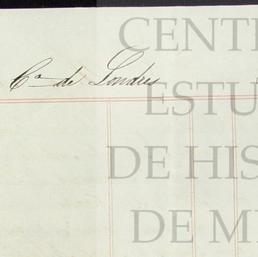 CENT
Cª de Londres
ESTU
DE HIS
DE M